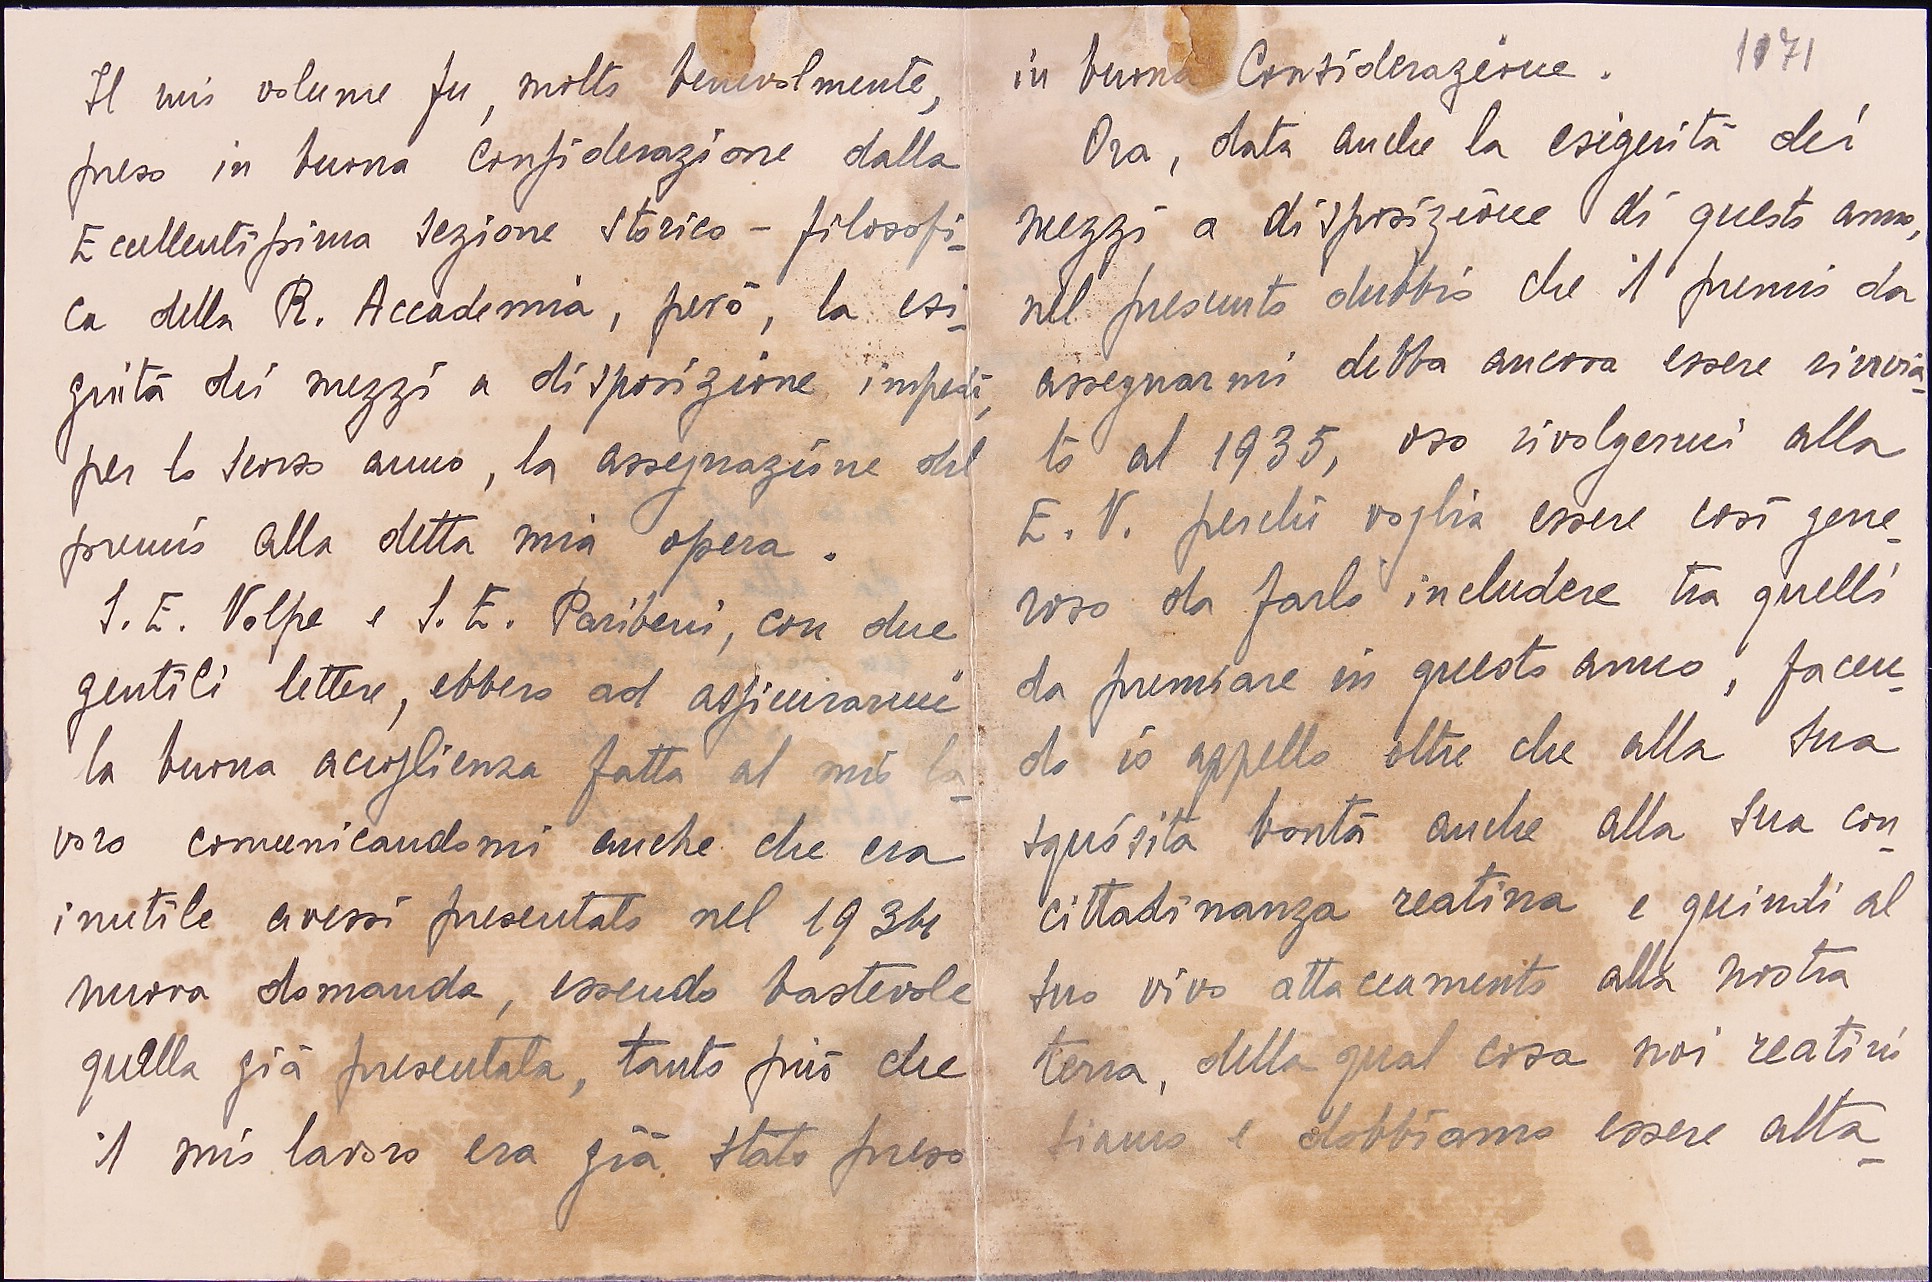 Il mio volume fu, molto benevolmente,
preso in buona considerazione dalla
Eccellentissima Sezione Storico - filosofi-
ca della R. Accademia, però, la esi-
guità dei mezzi a disposizione impedì,
per lo scorso anno, la assegnazione del
premio alla detta mia opera.
S. E. Volpe e S. E. Paribeni, con due
gentili lettere, ebbero ad assicurarmi
la buona accoglienza fatta al mio la-
voro comunicandomi anche che era
inutile avessi presentato nel 1934
nuova domanda, essendo bastevole
quella già presentata, tanto più che
il mio lavoro era già stato preso
1171
in buona considerazione.
Ora, data anche la esiguità dei
mezzi a disposizione di questo anno,
nel presunto dubbio che il premio da
assegnarmi debba ancora essere rinvia-
to al 1935, oso rivolgermi alla
E. V. perchè voglia essere così gene-
roso da farlo includere tra quelli
da premiare in questo anno, facen-
do io appello oltre che alla Sua
squisita bontà anche alla Sua con-
cittadinanza reatina e quindi al
Suo vivo attaccamento alla nostra
terra, della qual cosa noi reatini
siamo e dobbiamo essere alta-